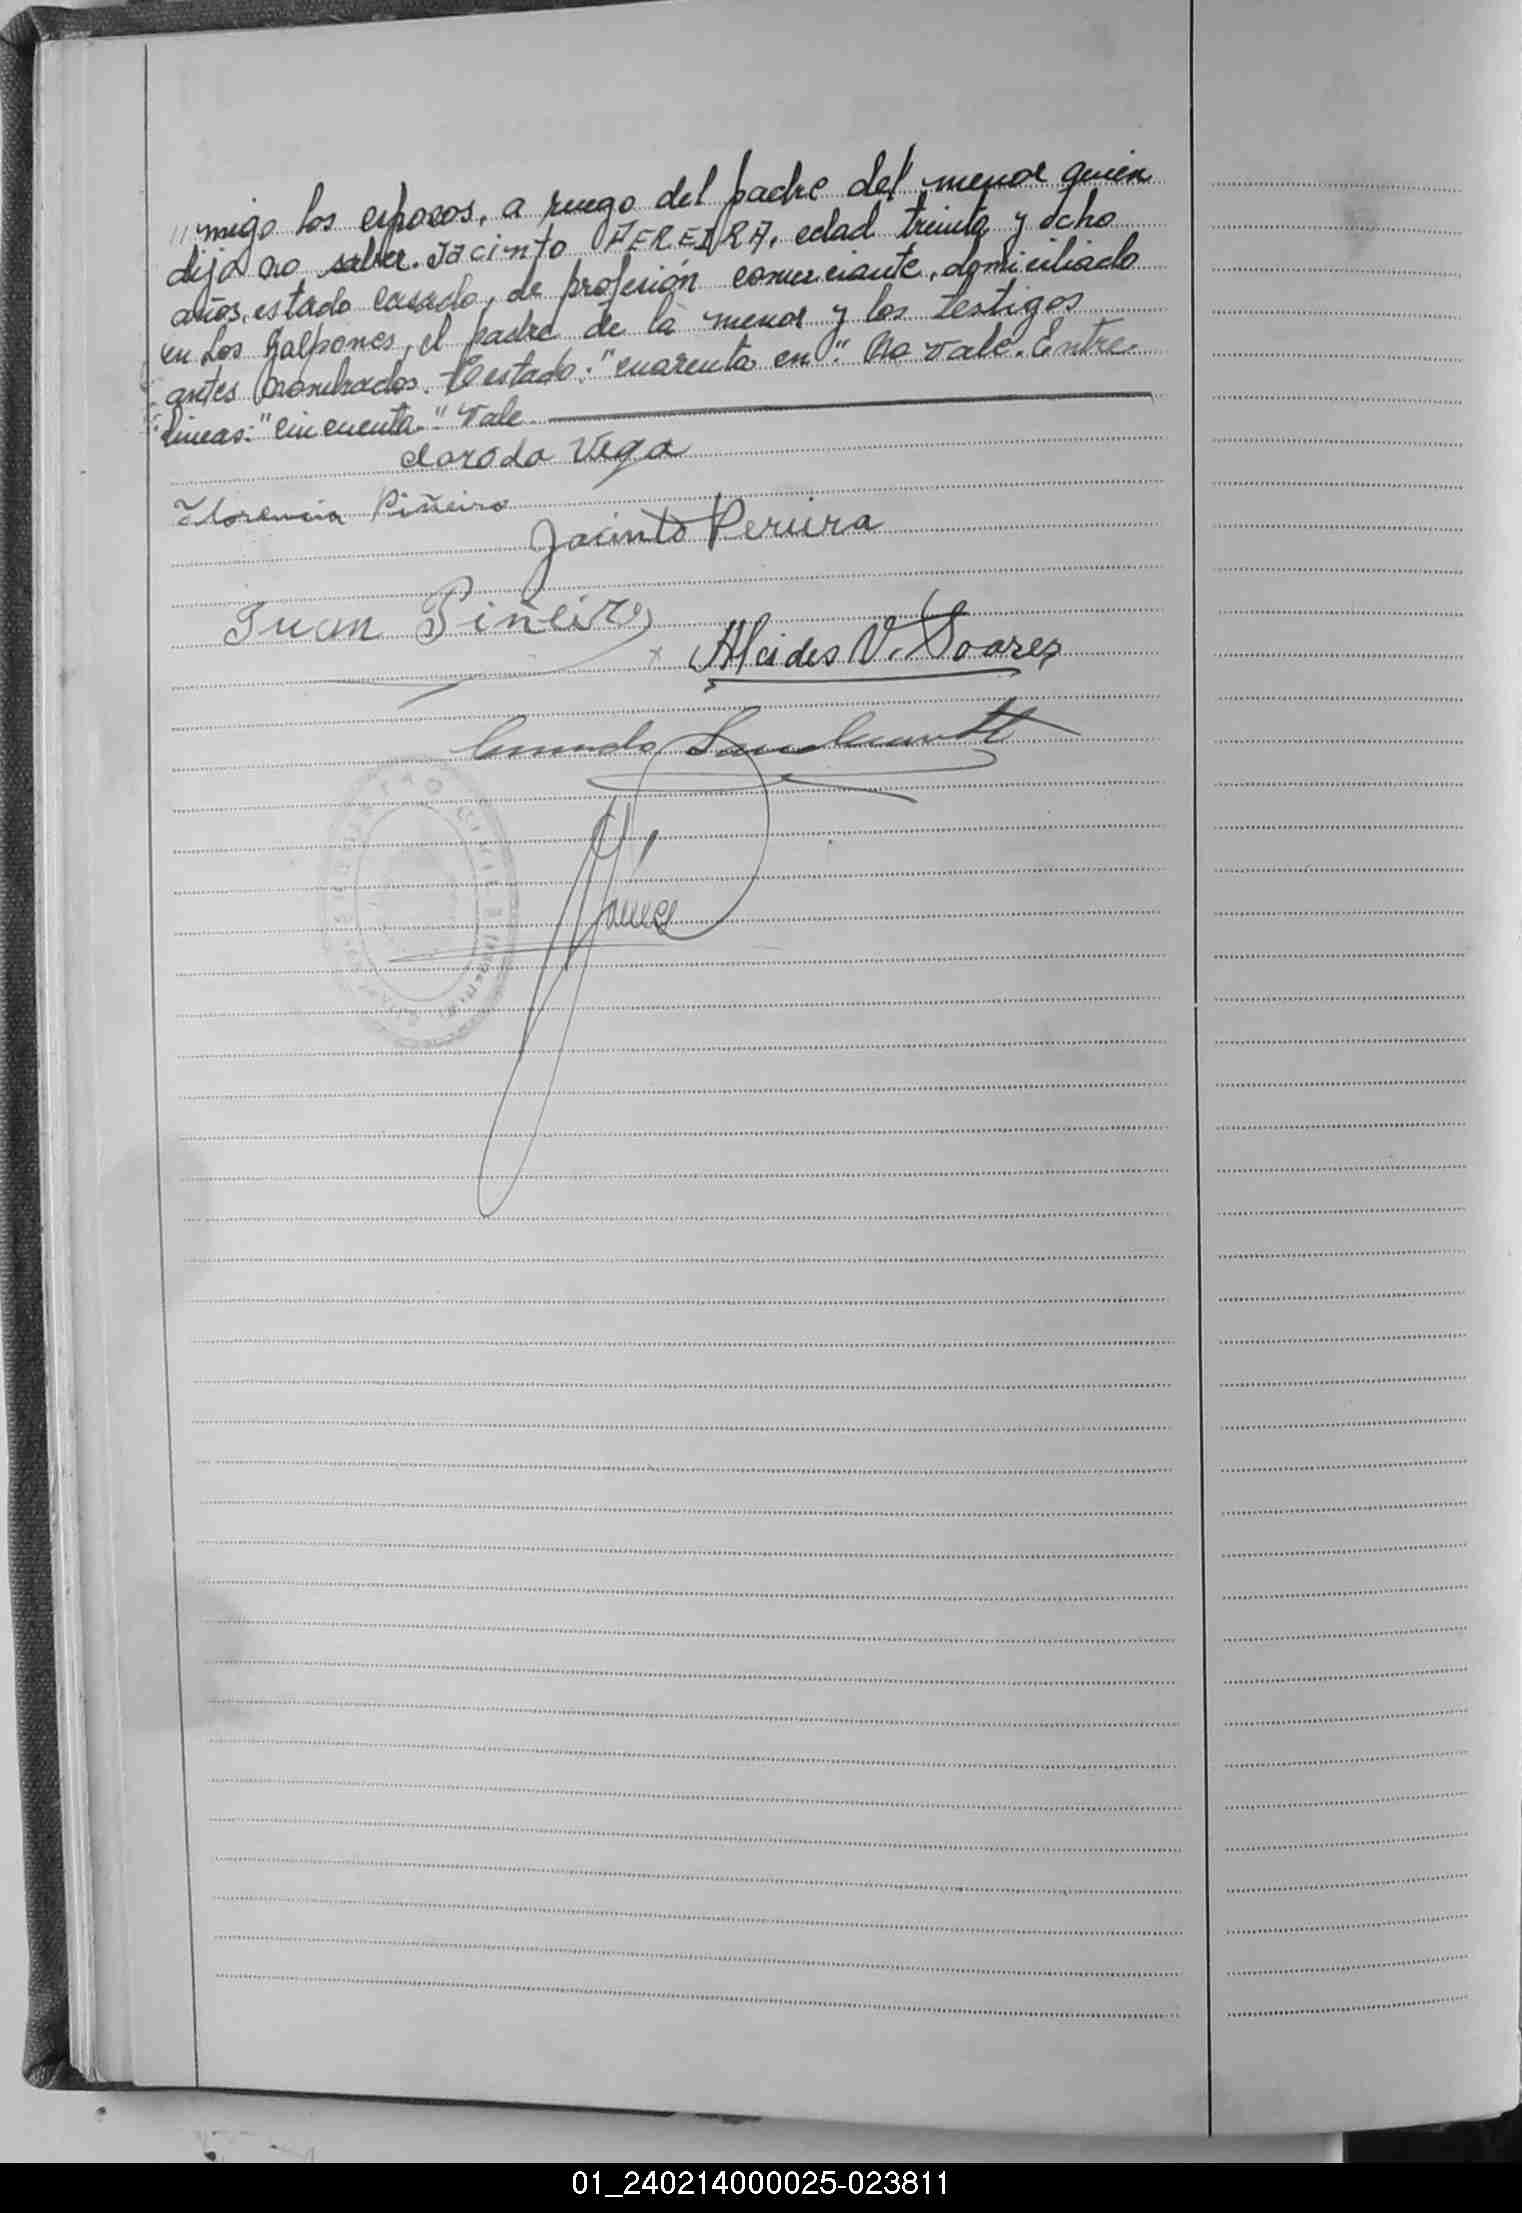 "migo los esposos, a ruego del padre del menor quien
dijo no saber. Jacinto PEREIRA, edad treinta y ocho
años, estado casado, de profesión comerciante, domiciliado
en Los Galpones, el padre de la menor y los testigos
antes nombrados. Testado: "cuarenta en". No vale. Entre-
lineas: "cincuenta." Vale.
Vega
Florencia Piñeiro
Jacinto Pereira
Juan Piñeiro
x Alcides V. Soares
REGISTRO CIVIL
01_240214000025-023811